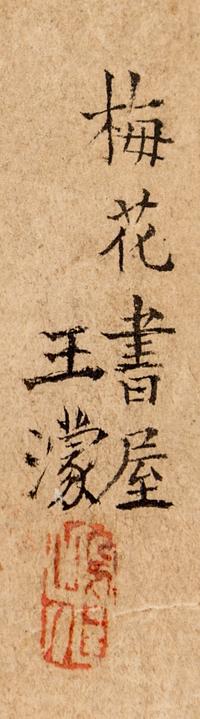 梅花書屋
王濛